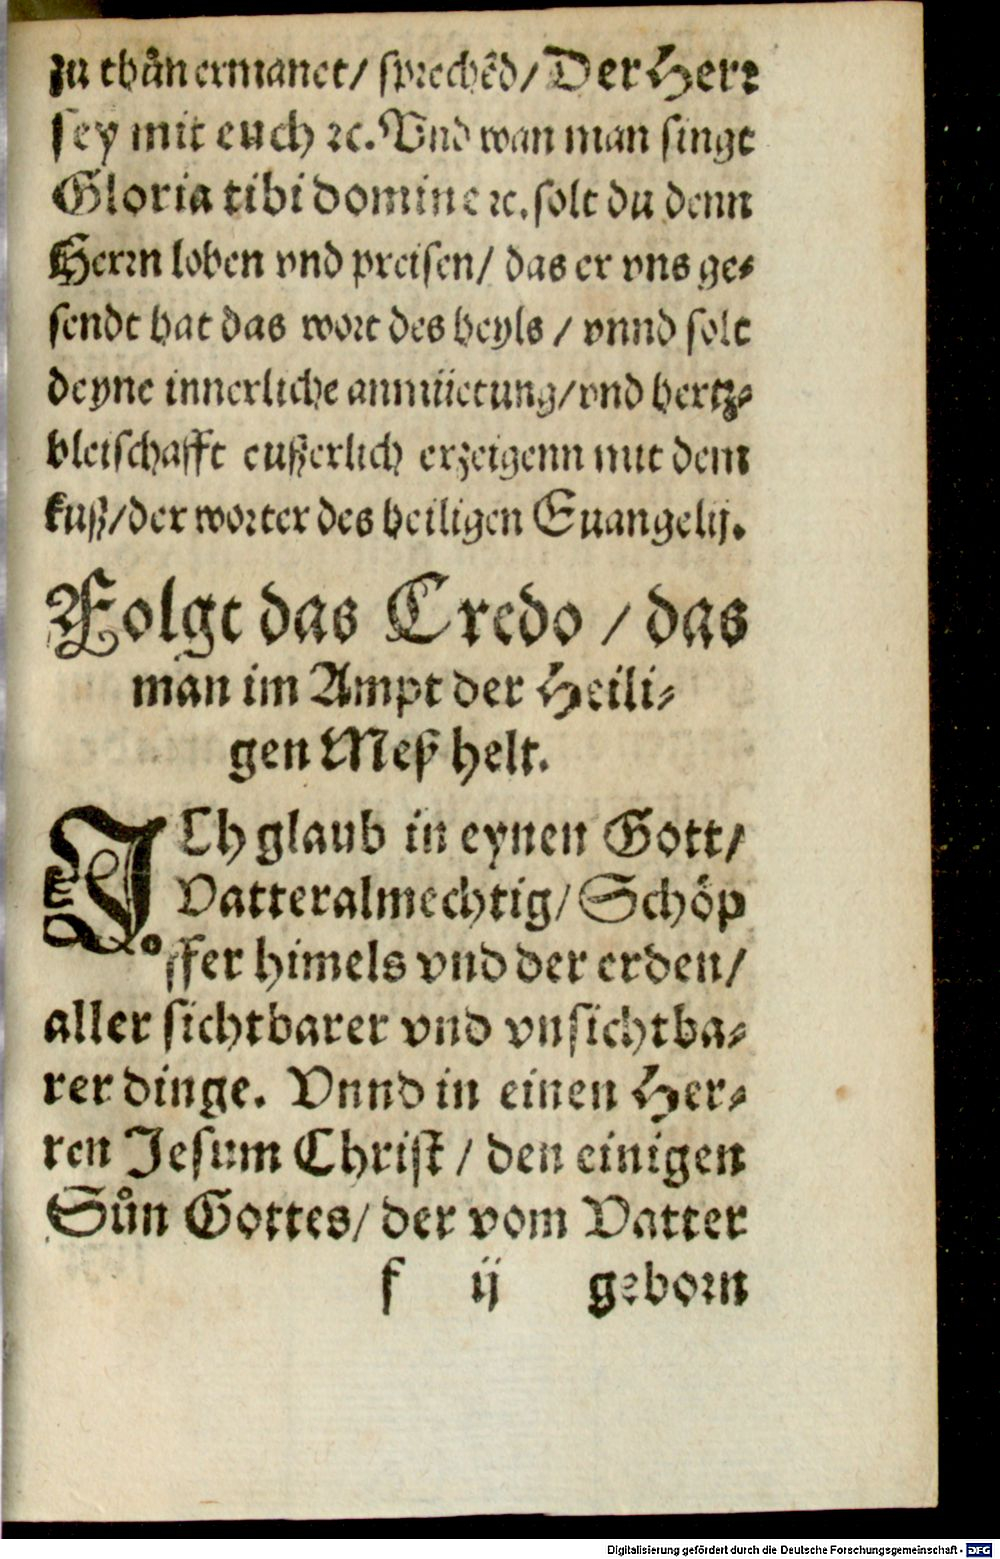 zu thůn ermanet/ sprechēd/ Der Herr
sey mit euch ꝛc. Vnd wan man singt
Gloria tibi domine ꝛc. solt du denn
Herrn loben vnd preisen/ das er vns ge⸗
sendt hat das wort des heyls / vnnd solt
deyne innerliche anmüetung/ vnd hertz⸗
bleischafft eußerlich erzeigenn mit dem
kuß/ der worter des heiligen Euangelij.
Folgt das Credo / das
man im Ampt der Heili⸗
gen Meß helt.
ICh glaub in eynen Gott/
Vatter almechtig/ Schöp
ffer himels vnd der erden/
aller sichtbarer vnd vnsichtba⸗
rer dinge. Vnnd in einen Her⸗
ren Jesum Christ / den einigen
Sůn Gottes/ der vom Vatter
f ij geborn
Digitalisierung gefördert durch die Deutsche Forschungsgemeinschaft - DFG